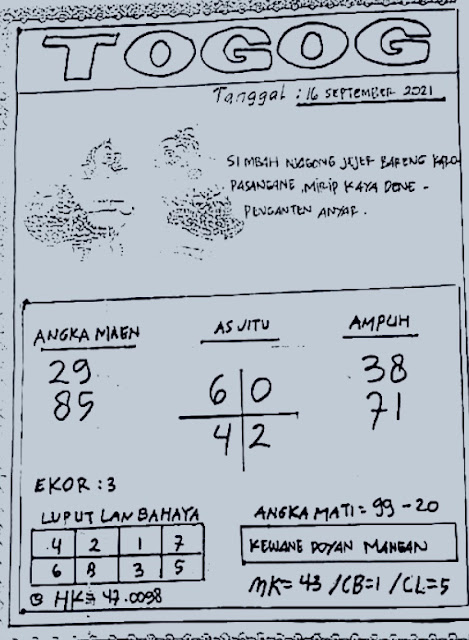 TOGOG
Tanggal : 16 SEPTEMBER 2021
SIMBAH NJAGONG JEJER BARENG KARO
PASANGANE, MIRIP KAYA DENE -
PENGANTEN ANYAR.
ANGKA MAEN
29
85
AS JITU
6 0
4 2
AMPUH
38
71
EKOR : 3
LUPUT LAN BAHAYA
4 2 1 7
6 8 3 5
HK = 47.0098
ANGKA MATI = 99 - 20
KEWANE DOYAN MANGAN
MK = 43 / CB = 1 / CL = 5